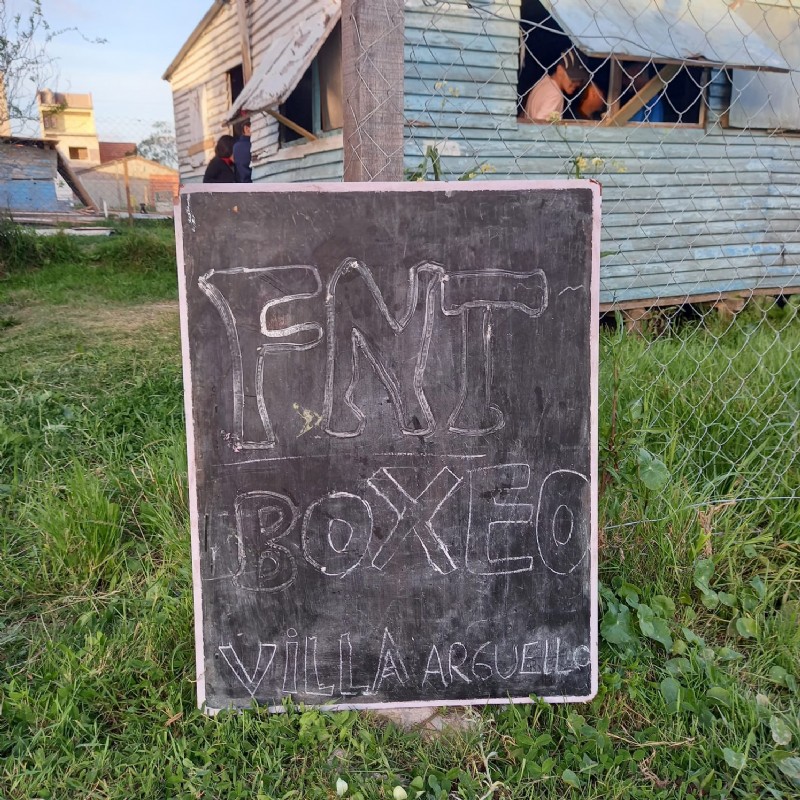 FNT
BOXEO
VILLA ARGUELLO